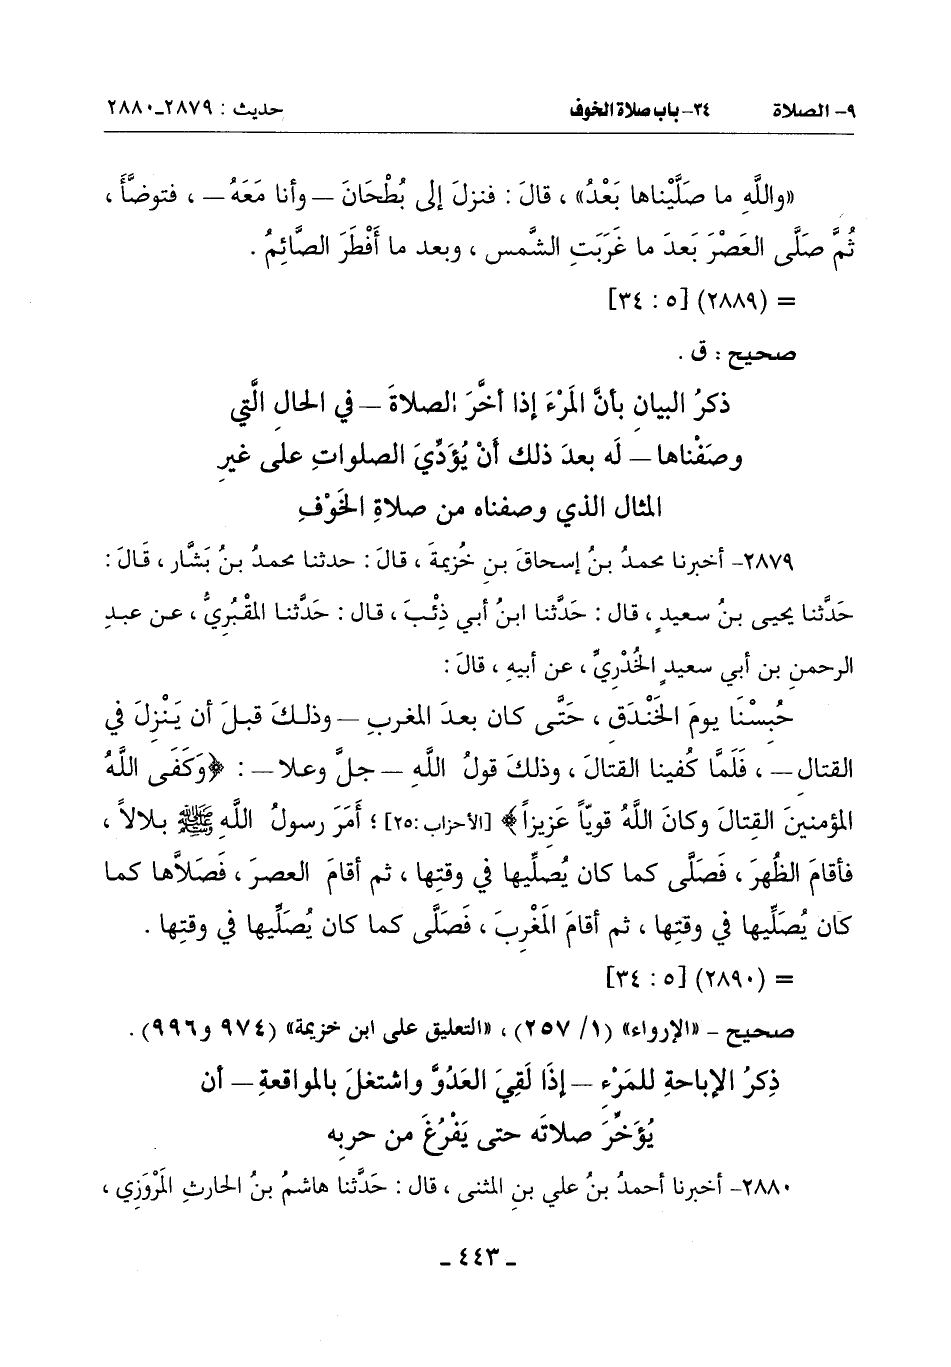 ٩- الصلاة ٣٤- باب صلاة الخوف حديث : ٢٨٧٩-٢٨٨٠
«واللَّهِ ما صَلَّيْناها بَعْدُ» ، قالَ : فنزلَ إلى بُطْحَانَ – وأنا مَعَهُ – ، فتوضَّأَ ،
ثُمَّ صَلَّى العَصْرَ بَعدَ ما غَرَبَتِ الشَّمس ، وبعد ما أَفْطَرَ الصَّائِمُ .
= (٢٨٨٩) [٥ : ٣٤]
صحيح : ق .
ذكرُ البيانِ بأنَّ المَرْءَ إذا أخَّرَ الصلاةَ – في الحالِ الَّتي
وصَفْناها – لَه بعدَ ذلك أَنْ يُؤَدِّيَ الصلواتِ على غيرِ
المثال الذي وصفناه من صلاةِ الخَوْفِ
٢٨٧٩- أخبرنا محمدُ بنُ إسحاقَ بنِ خُزيمةَ ، قالَ : حدثنا محمدُ بنُ بَشَّار ، قَالَ :
حَدَّثنا يحيى بنُ سعيدٍ ، قال : حَدَّثنا ابنُ أبي ذِئْبَ ، قال : حَدَّثنا المَقْبُرِيُّ ، عن عبدِ
الرحمنِ بن أبي سعيدٍ الخُدْرِيِّ ، عن أبيهِ ، قالَ :
حُبِسْنَا يومَ الخَنْدَقِ ، حَتَّى كان بعدَ المغربِ – وذلكَ قبلَ أن يَنْزِلَ في
القتالِ – ، فَلَمَّا كُفينا القتالَ ، وذلكَ قولُ اللَّهِ – جلَّ وعلا – : ﴿وَكَفَى اللَّهُ
المؤمنينَ القِتالَ وكانَ اللَّهُ قويّاً عَزيزاً﴾ [الأحزاب :٢٥] ؛ أَمَرَ رسولُ اللَّهِ ﷺ بلالاً ،
فأقامَ الظُهرَ ، فَصَلَّى كما كان يُصلِّيها في وقتِها ، ثم أقامَ العصرَ ، فَصَلاَّها كما
كان يُصَلِّيها في وقتِها ، ثم أقامَ المَغْرِبَ ، فَصلَّى كما كان يُصَلِّيها في وقتِها .
= (٢٨٩٠) [٥ : ٣٤]
صحيح - «الإرواء» (١/ ٢٥٧) ، «التعليق على ابن خزيمة» (٩٧٤ و٩٩٦) .
ذِكرُ الإباحةِ للمَرْءِ – إذَا لَقِيَ العَدُوَّ واشتغلَ بالمواقعةِ – أن
يُؤَخِّرَ صلاتَه حتى يَفْرُغَ من حربِه
٢٨٨٠- أخبرنا أحمدُ بنُ علي بنِ المثنى ، قال : حَدَّثنا هاشمُ بنُ الحارثِ المَرْوَزِي ،
- ٤٤٣ -